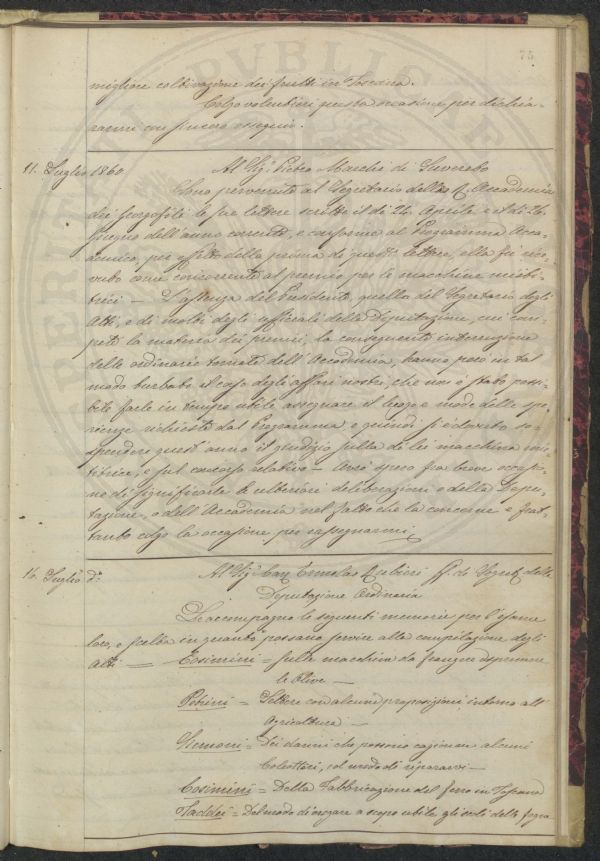 75
migliore coltivazione dei frutti in Toscana.
Colgo volentieri questa occasione per dichia-
rarmi con sincero ossequio.
11. Luglio 1860
Al Sig.r Pietro Marchi di Suvereto
Sono pervenute al Segretario della R. Accademia
dei Georgofili le sue lettere scritte il dì 24. Aprile e il dì 26.
Giugno dell'anno corrente, e conforme al Programma Acca-
demico, per effetto della prima di queste lettere, ella fu rice-
vuto come concorrente al premio per le macchine mieti-
trici — L'assenza del Presidente, quella del Segretario degli
Atti, e di molti degli ufficiali della Deputazione, cui com-
peti la materia dei premi, la conseguente interruzione
delle ordinarie tornate dell'Accademia, hanno però in tal
modo turbato il corso degli affari nostri, che non è stato possi-
bile farle in tempo utile assegnare il luogo e modo delle spe-
rienze richieste dal Programma, e quindi si è dovuto so-
spendere quest'anno il giudizio sulla di lei macchina mie-
titrice, e sul concorso relativo — Avrò spero fra breve occasio-
ne di significarle le ulteriori deliberazioni o della Depu-
tazione, o dell'Accademia nel fatto che la concerne e frat-
tanto colgo la occasione per rassegnarmi
14. Luglio d.o
Al Sig.r Cav. Ermolao Rubieri ff. di Segret. della
Deputazione Ordinaria
Le accompagno le seguenti memorie per l'esame
loro, e scelta in quanto possano servire alla compilazione degli
Atti — Cosimini = Sulla macchina da frangere e spremere
le Olive —
Petrini = Lettere con alcune proposizioni intorno all'
Agricoltura —
Simoni = Dei danni che possono cagionare alcuni
Coleotteri, col modo di ripararvi —
Cosimini = Della Fabbricazione del ferro in Toscana
Taddei = Del modo di erogare a scopo utile gli scoli delle fogne